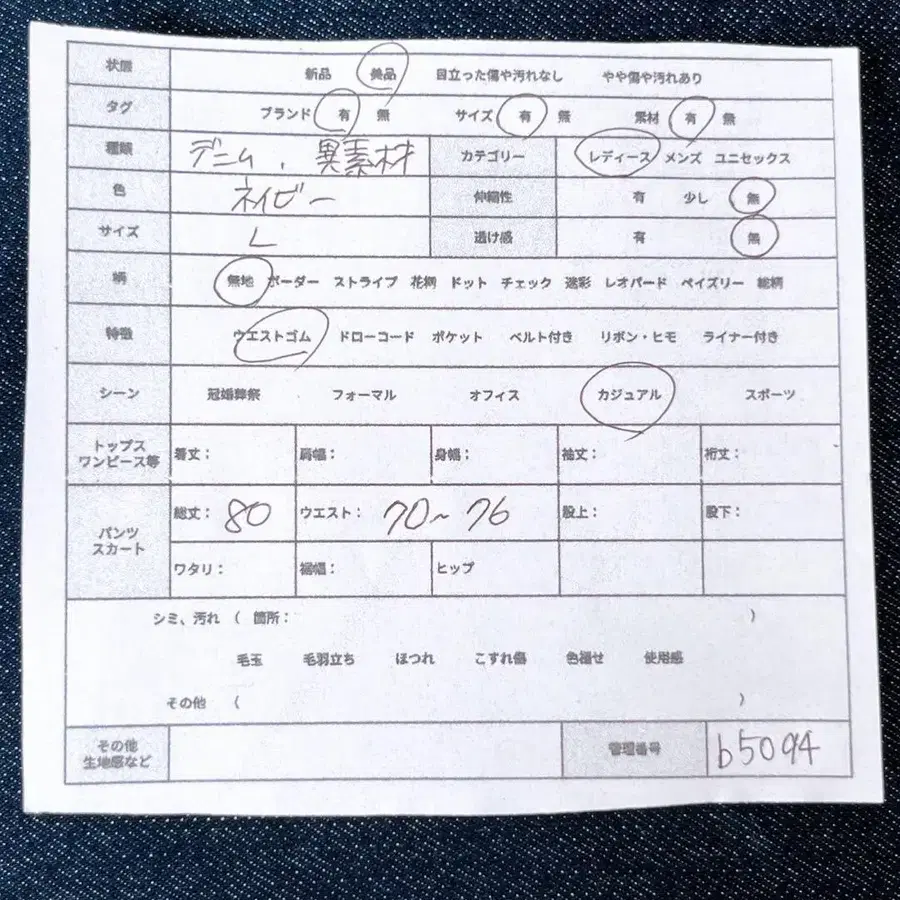 状態 新品 美品 目立った傷や汚れなし やや傷や汚れあり
タグ ブランド 有 無 サイズ 有 無 素材 有 無
種類 デニム、異素材 カテゴリー レディース メンズ ユニセックス
色 ネイビー 伸縮性 有 少し 無
サイズ L 透け感 有 無
柄 無地 ボーダー ストライプ 花柄 ドット チェック 迷彩 レオパード ペイズリー 総柄
特徴 ウエストゴム ドローコード ポケット ベルト付き リボン・ヒモ ライナー付き
シーン 冠婚葬祭 フォーマル オフィス カジュアル スポーツ
トップス
ワンピース等 着丈： 肩幅： 身幅： 袖丈： 裄丈：
パンツ
スカート
総丈： 80 ウエスト： 70~76 股上： 股下：
ワタリ： 裾幅： ヒップ
シミ、汚れ （ 箇所： ）
毛玉 毛羽立ち ほつれ こすれ傷 色褪せ 使用感
その他 （ ）
その他
生地感など 管理番号 b5094